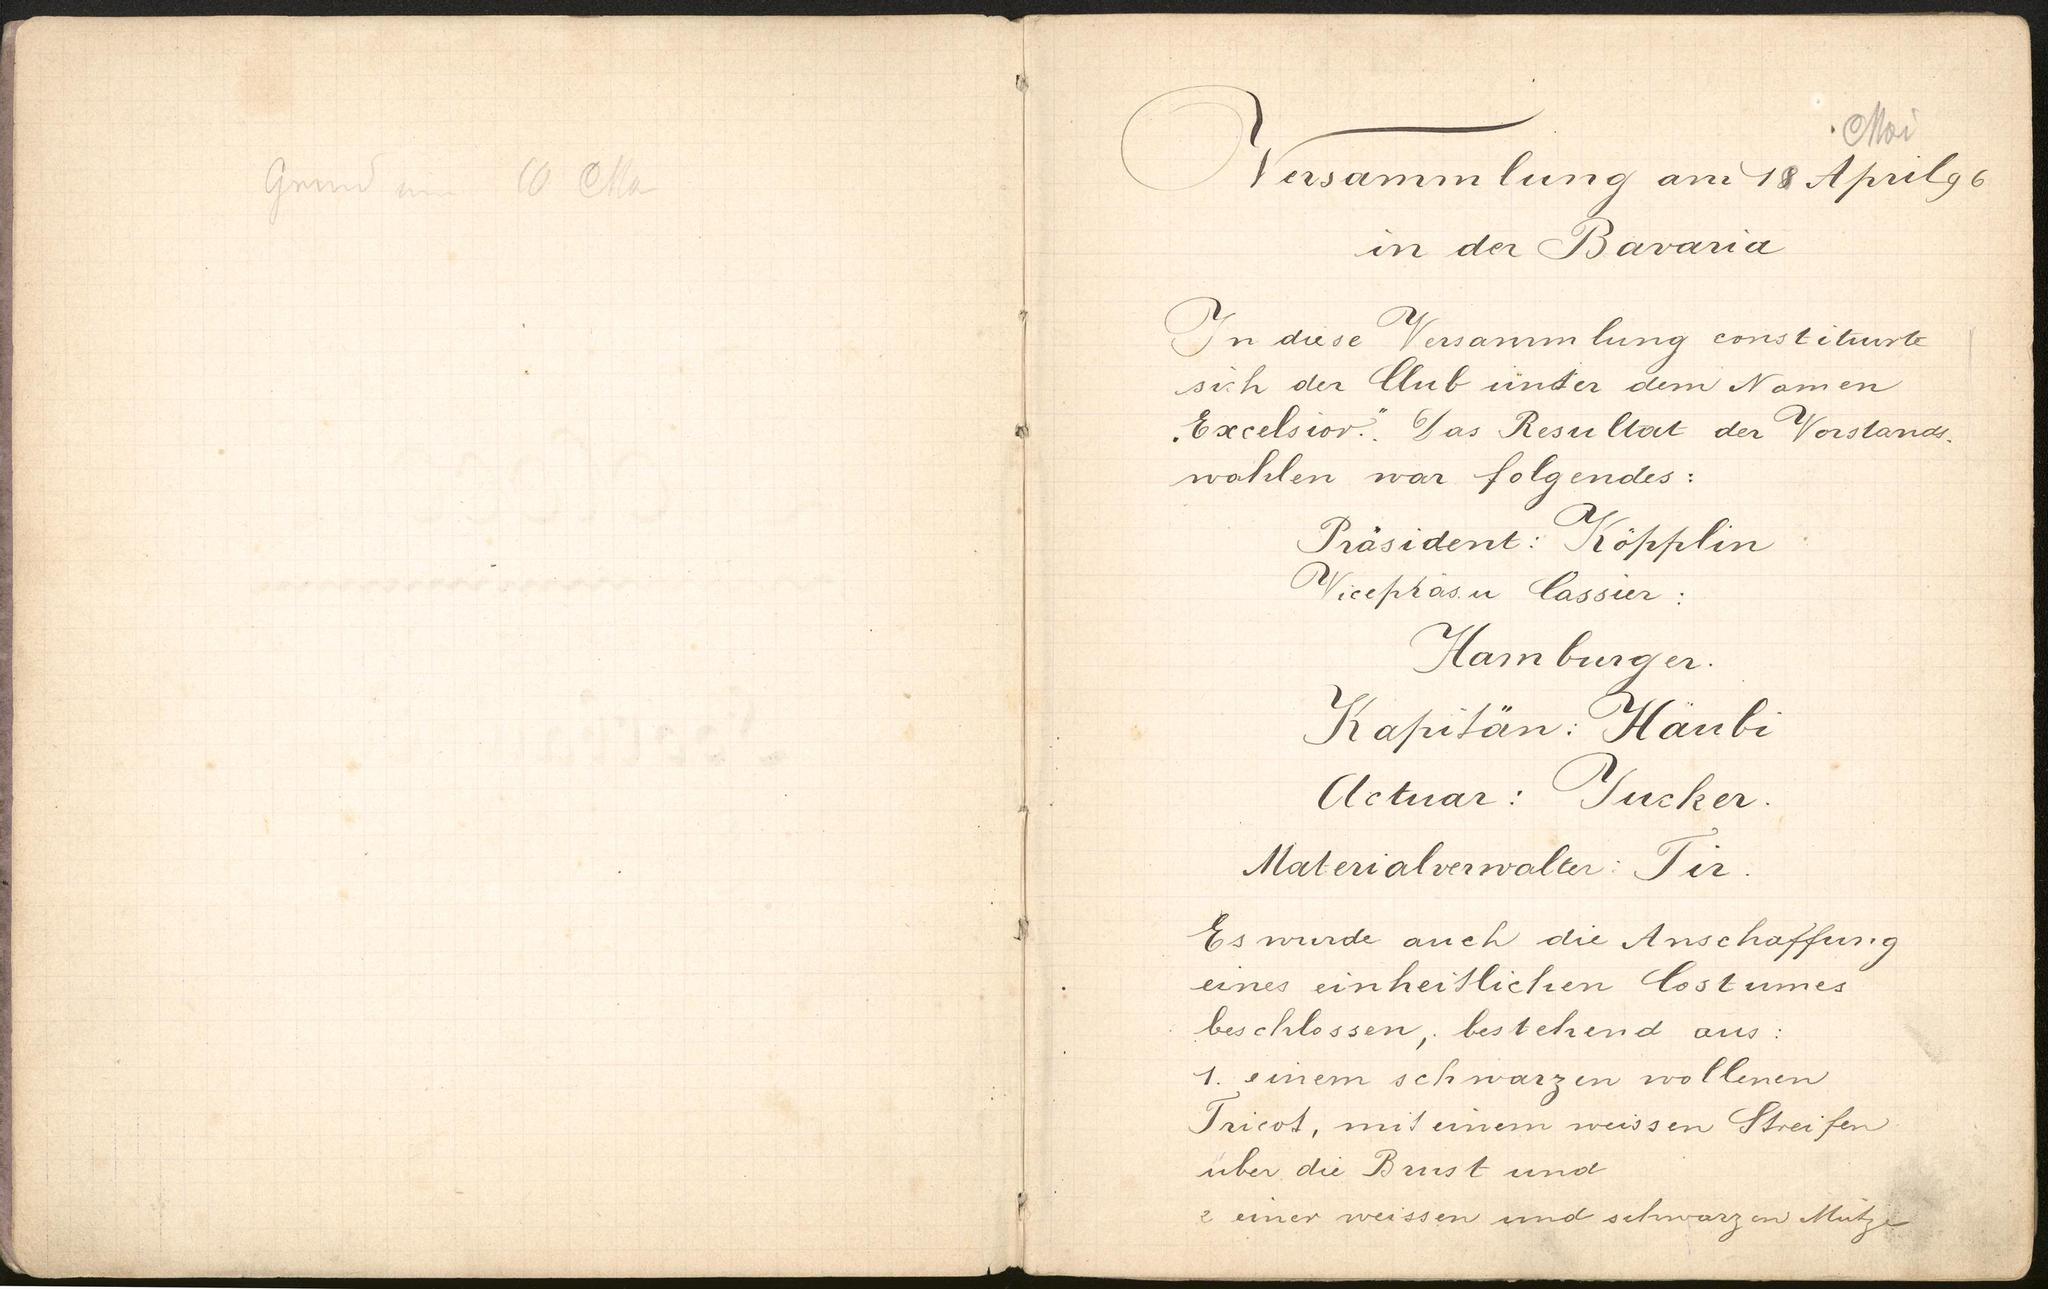 Mai
Versammlung am 18 April 96
in der Bavaria
In diese Versammlung constituirte
sich der Club unter dem Namen
„Excelsior“. Das Resultat der Vorstands-
wahlen war folgendes:
Präsident: Köpplin
Vicepräs. u Cassier:
Hamburger.
Kapitän: Häubi
Actuar: Jucker.
Materialverwalter: Tir.
Es wurde auch die Anschaffung
eines einheitlichen Costumes
beschlossen, bestehend aus:
1. einem schwarzen wollenen
Tricot, mit einem weissen Streifen
über die Brust und
2 einer weissen und schwarzen Mütze